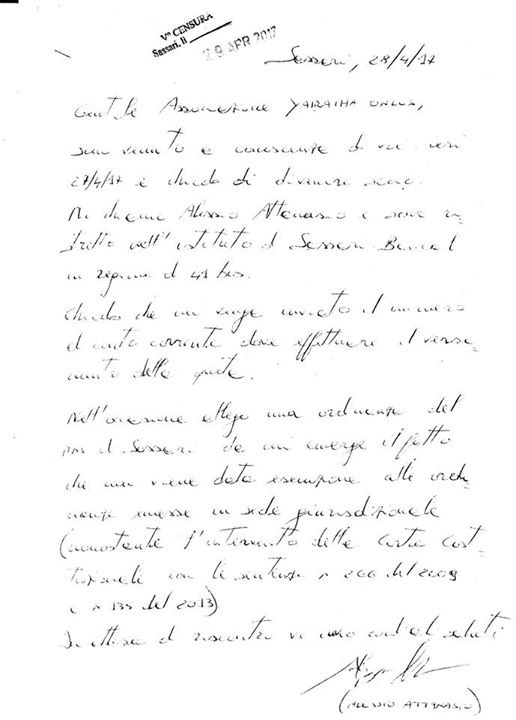 Vº CENSURA
Sassari, li
29 APR 2017
Sassari, 28/4/17
Gentile Associazione YARAIHA ONLUS,
sono venuto a conoscenza di voi ieri
27/4/17 e chiedo di divenire socio.
Mi chiamo Alessio Attanasio e sono ri-
stretto nell'istituto di Sassari Bancali
in regime di 41 bis.
Chiedo che mi venga inviato il numero
di conto corrente dove effettuare il versa-
mento delle quote.
Nell'occasione allego una ordinanza del
di Sassari da cui emerge il fatto
che non viene data esecuzione alle ordi-
nanze emesse in sede giurisdizionale
(nonostante l'intervento della Corte Cost-
tuzionale con le sentenze n 266 del 2009
e n 135 del 2013).
In attesa di riscontro vi invio cordiali saluti
(ALESSIO ATTANASIO)